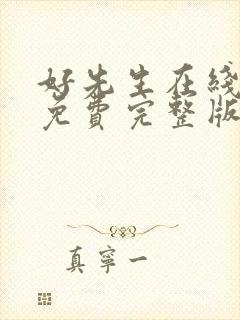 好先生在线
免費完整版
真寧一